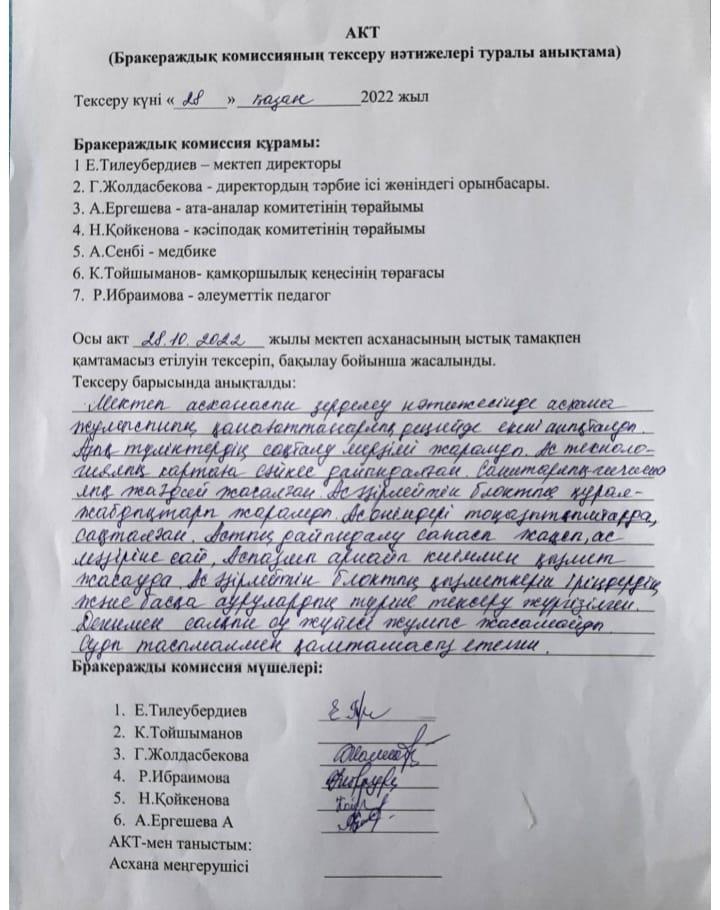 АКТ
(Бракераждық комиссияның тексеру нәтижелері туралы анықтама)
Тексеру күні « 28 » қазан 2022 жыл
Бракераждық комиссия құрамы:
1 Е.Тилеубердиев – мектеп директоры
2. Г.Жолдасбекова - директордың тәрбие ісі жөніндегі орынбасары.
3. А.Ергешева - ата-аналар комитетінің төрайымы
4. Н.Қойкенова - кәсіподақ комитетінің төрайымы
5. А.Сенбі - медбике
6. К.Тойшыманов- қамқоршылық кеңесінің төрағасы
7. Р.Ибраимова - әлеуметтік педагог
Осы акт 28.10.2022 жылы мектеп асханасының ыстық тамақпен
қамтамасыз етілуін тексеріп, бақылау бойынша жасалынды.
Тексеру барысында анықталды:
Мектеп асханасын зерделеу нәтижесінде асхана
жұмысының қанағаттанарлық деңгейде екені анықталды.
Азық түліктердің сақталу мерзімі жарамды. Ас техноло-
гиялық картаға сәйкес дайындалған. Санитарлық-гигиена
лық жағдай жасалған. Ас әзірлейтін блоктың құрал-
жабдықтары жарамды. Ас өнімдері тоңазытқыштарда,
сақталған. Астың дайындалу сапасы жақсы, ас
мәзіріне сай. Аспазшы арнайы киіммен қызмет
жасауда. Ас әзірлейтін блоктың қызметкері іріңдердің
және басқа аурулардың түріне тексеру жүргізілген.
салқын су жүйесі жұмыс жасамайды.
Суды тасымалмен қамтамасыз етелген.
Бракеражды комиссия мүшелері:
1. Е.Тилеубердиев
2. К.Тойшыманов
3. Г.Жолдасбекова
4. Р.Ибраимова
5. Н.Қойкенова
6. А.Ергешева А
АКТ-мен таныстым:
Асхана меңгерушісі